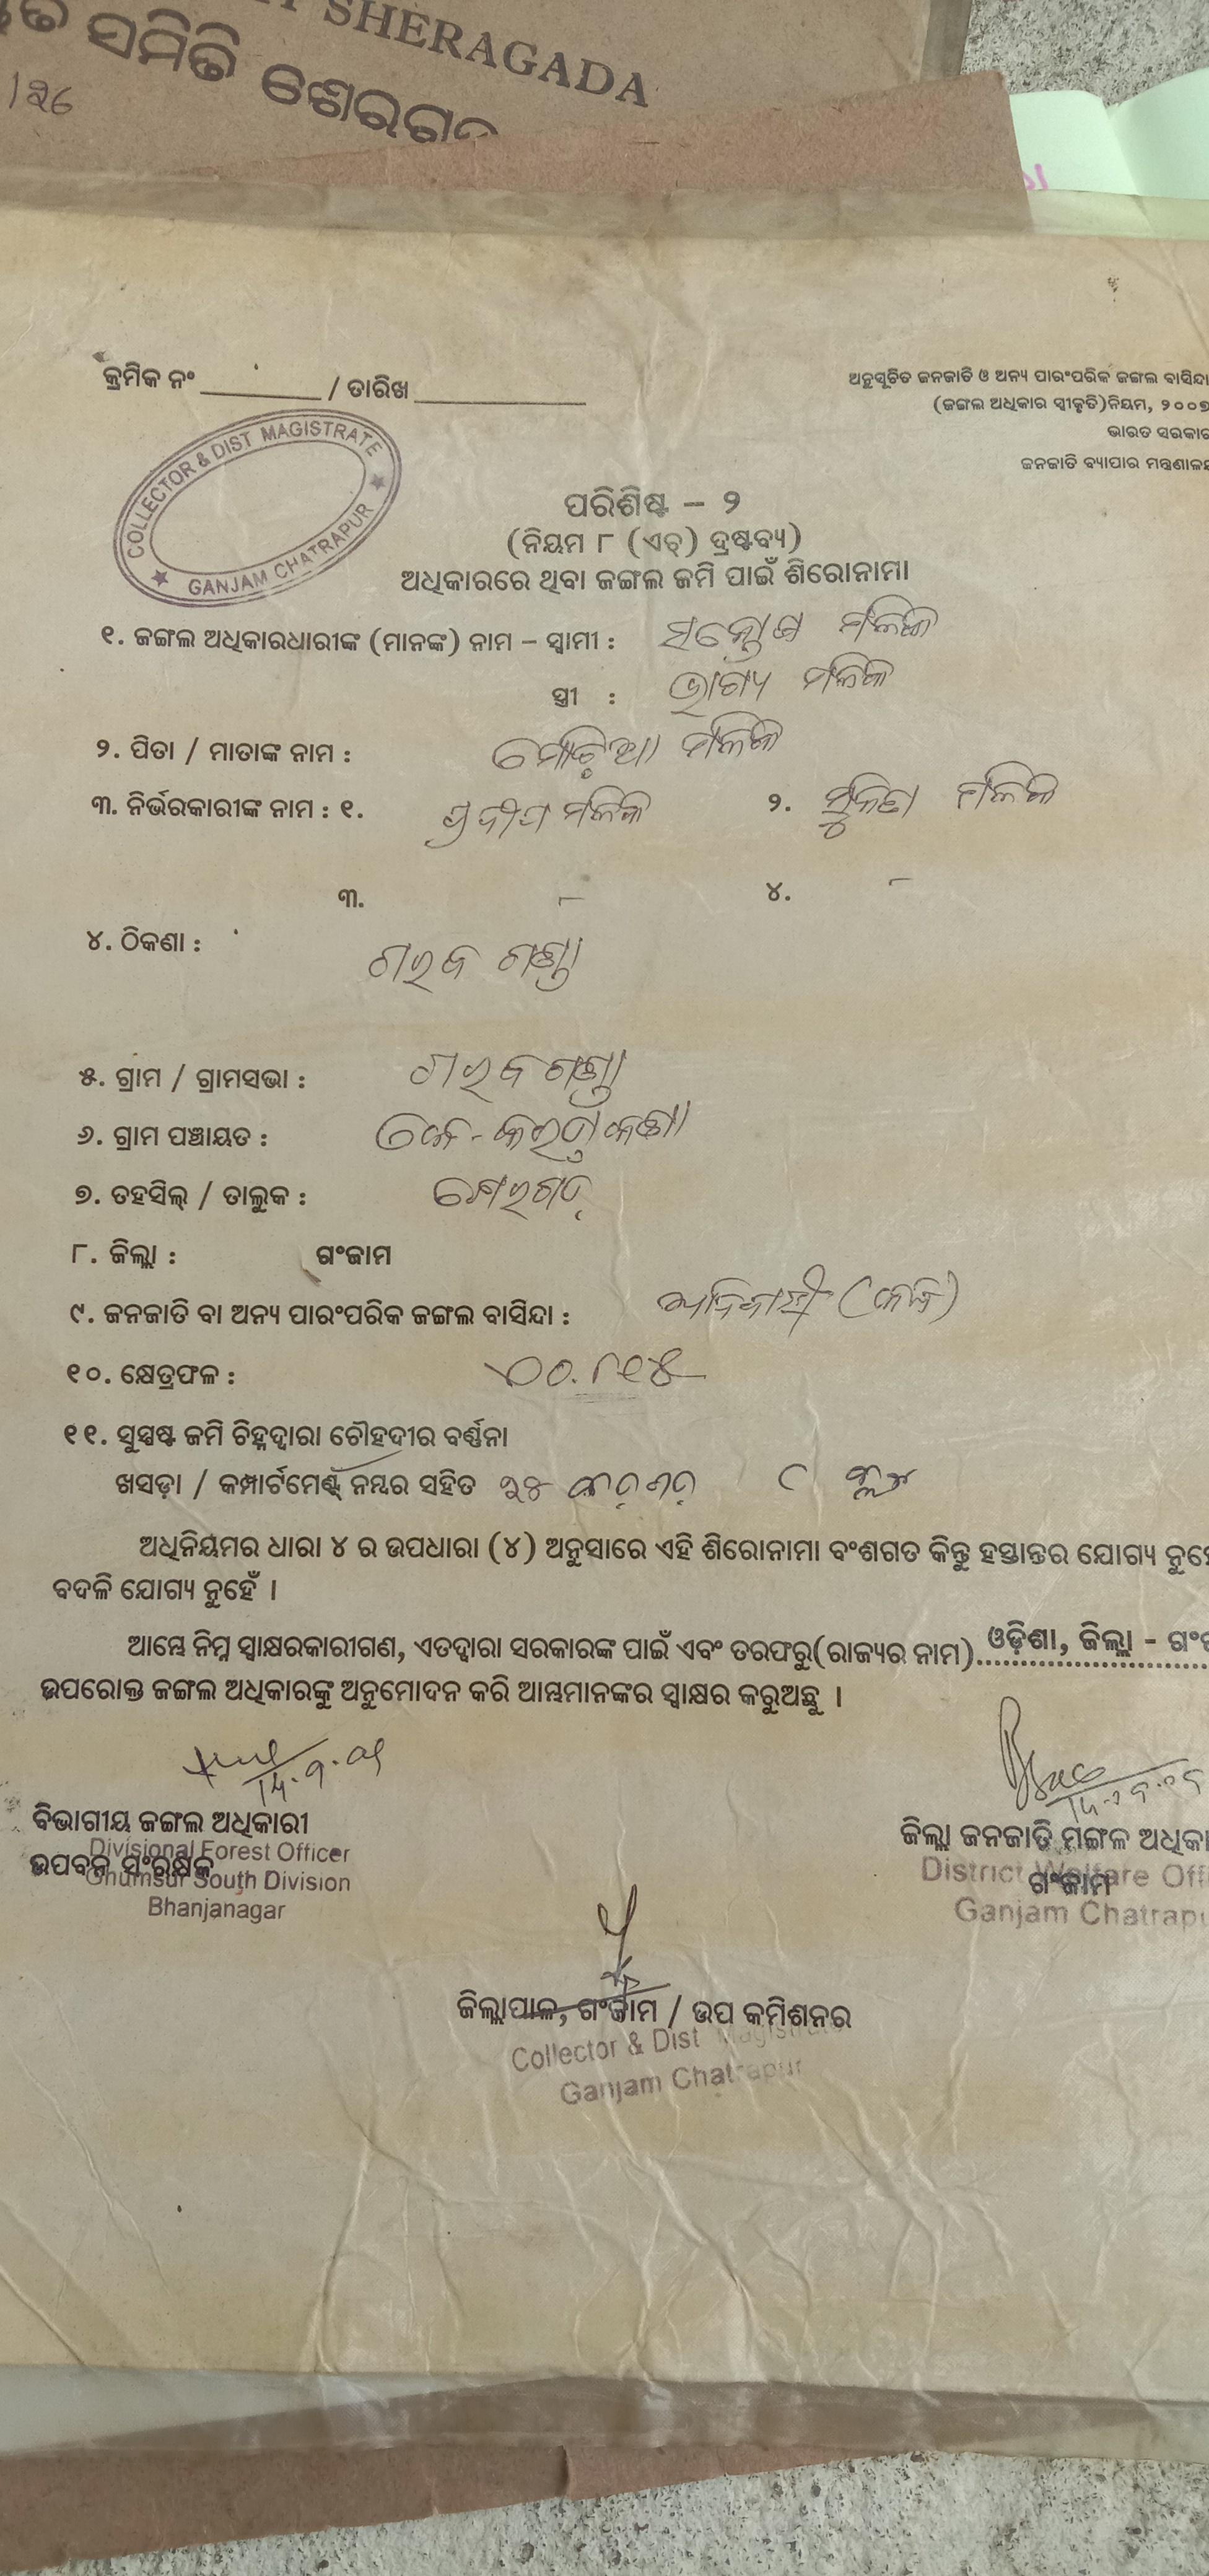 SHERAGADA
ସମିତି ଶେରଗଡ
କ୍ରମିକ ନଂ / ତାରିଖ
ଅନୁସୂଚିତ ଜନଜାତି ଓ ଅନ୍ୟ ପାରଂପରିକ ଜଙ୍ଗଲ ବାସିନ୍ଦା
(ଜଙ୍ଗଲ ଅଧିକାର ସ୍ୱୀକୃତି)ନିୟମ, ୨୦୦୭
ଭାରତ ସରକାର
ଜନଜାତି ବ୍ୟାପାର ମନ୍ତ୍ରଣାଳୟ
COLLECTOR & DIST MAGISTRATE
GANJAM CHATRAPUR
ପରିଶିଷ୍ଟ – ୨
(ନିୟମ ୮ (ଏଚ୍) ଦ୍ରଷ୍ଟବ୍ୟ)
ଅଧିକାରରେ ଥିବା ଜଙ୍ଗଲ ଜମି ପାଇଁ ଶିରୋନାମା
୧. ଜଙ୍ଗଲ ଅଧିକାରଧାରୀଙ୍କ (ମାନଙ୍କ) ନାମ – ସ୍ୱାମୀ : ସନ୍ତୋଷ ମଳିକ
ସ୍ତ୍ରୀ : ଭାଗ୍ୟ ମଳିକ
୨. ପିତା / ମାତାଙ୍କ ନାମ : ମଳିକ
୩. ନିର୍ଭରକାରୀଙ୍କ ନାମ : ୧. ମଳିକ ୨. ମଳିକ
୩. ୪.
୪. ଠିକଣା :
୫. ଗ୍ରାମ / ଗ୍ରାମସଭା :
୬. ଗ୍ରାମ ପଞ୍ଚାୟତ :
୭. ତହସିଲ୍ / ତାଲୁକ : ଶେରଗଡ଼
୮. ଜିଲ୍ଲା : ଗଂଜାମ
୯. ଜନଜାତି ବା ଅନ୍ୟ ପାରଂପରିକ ଜଙ୍ଗଲ ବାସିନ୍ଦା : ଆଦିବାସୀ
୧୦. କ୍ଷେତ୍ରଫଳ : ୦୦.୮୧୪
୧୧. ସୁସ୍ପଷ୍ଟ ଜମି ଚିହ୍ନଦ୍ୱାରା ଚୌହଦୀର ବର୍ଣ୍ଣନା
ଖସଡ଼ା / କମ୍ପାର୍ଟମେଣ୍ଟ୍ ନମ୍ବର ସହିତ
ଅଧିନିୟମର ଧାରା ୪ ର ଉପଧାରା (୪) ଅନୁସାରେ ଏହି ଶିରୋନାମା ବଂଶଗତ କିନ୍ତୁ ହସ୍ତାନ୍ତର ଯୋଗ୍ୟ ନୁହେ
ବଦଳି ଯୋଗ୍ୟ ନୁହେଁ ।
ଆମ୍ଭେ ନିମ୍ନ ସ୍ୱାକ୍ଷରକାରୀଗଣ, ଏତଦ୍ୱାରା ସରକାରଙ୍କ ପାଇଁ ଏବଂ ତରଫରୁ(ରାଜ୍ୟର ନାମ) ଓଡ଼ିଶା, ଜିଲ୍ଲା - ଗଂଜ
ଉପରୋକ୍ତ ଜଙ୍ଗଲ ଅଧିକାରଙ୍କୁ ଅନୁମୋଦନ କରି ଆମ୍ଭମାନଙ୍କର ସ୍ୱାକ୍ଷର କରୁଅଛୁ ।
ବିଭାଗୀୟ ଜଙ୍ଗଲ ଅଧିକାରୀ
Divisional Forest Officer
ଉପବନ ସଂରକ୍ଷକ
Ghumsur South Division
Bhanjanagar
ଜିଲ୍ଲା ଜନଜାତି ମଙ୍ଗଳ ଅଧିକା
District Welfare Offi
ଗଂଜାମ
Ganjam Chatrapu
ଜିଲ୍ଲାପାଳ, ଗଂଜାମ / ଉପ କମିଶନର
Collector & Dist Magistrate
Ganjam Chatrapur